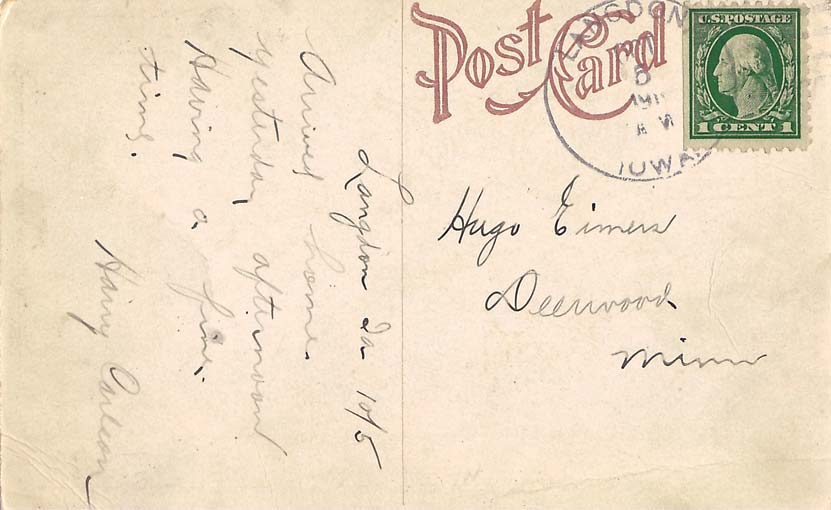 Post Card
LANGDON
5
IOWA
U.S. POSTAGE
1 CENT 1
Langdon Ia 10/5
Arrived home
yesterday afternoon
Having a fine
time.
Harry Carlson
Hugo Eimers
Deerwood
Minn